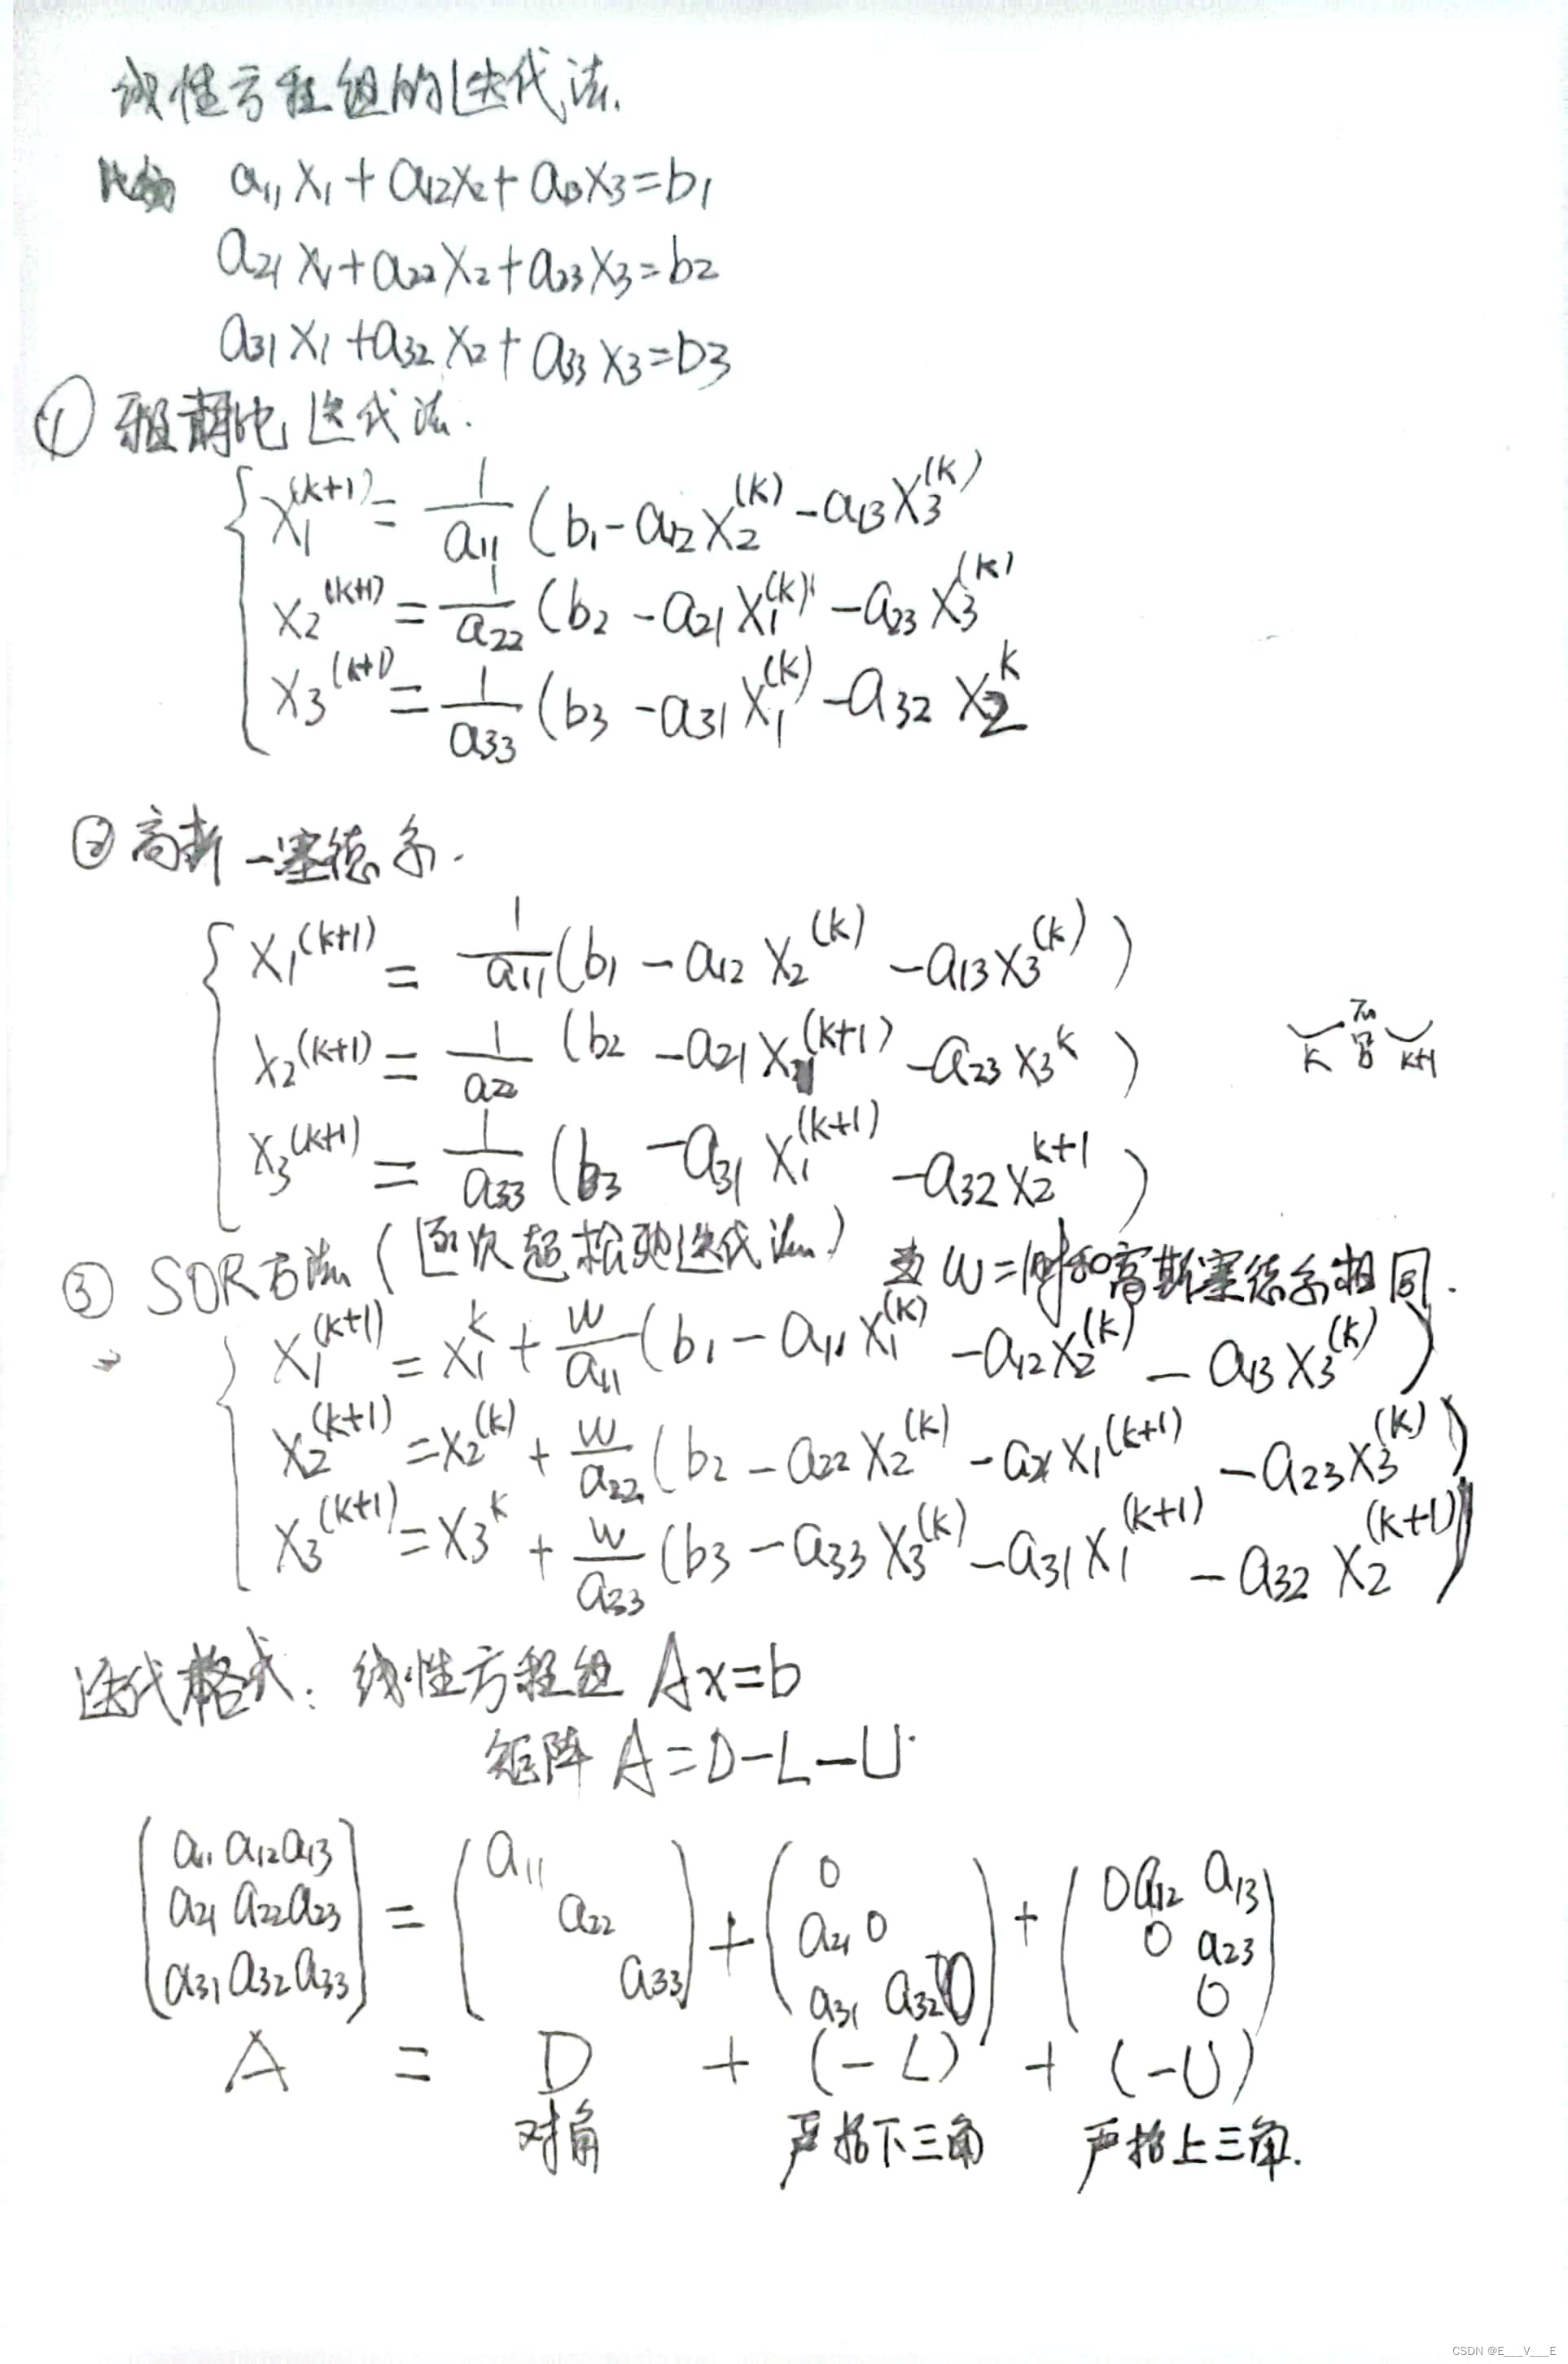 线性方程组的迭代法.
比如 a11 x1 + a12 x2 + a13 x3 = b1
a21 x1 + a22 x2 + a23 x3 = b2
a31 x1 + a32 x2 + a33 x3 = b3
① 雅静比迭代法.
x1^(k+1) = 1/a11 (b1 - a12 x2^(k) - a13 x3^(k)
x2^(k+1) = 1/a22 (b2 - a21 x1^(k) - a23 x3^(k)
x3^(k+1) = 1/a33 (b3 - a31 x1^(k) - a32 x2^k
② 高斯-塞德尔.
x1^(k+1) = 1/a11 (b1 - a12 x2^(k) - a13 x3^(k))
x2^(k+1) = 1/a22 (b2 - a21 x1^(k+1) - a23 x3^k)
k k+1
x3^(k+1) = 1/a33 (b3 - a31 x1^(k+1) - a32 x2^k+1)
③ SOR方法 (逐次超松弛迭代法) 当 w=1时和高斯塞德尔相同.
x1^(k+1) = x1^k + w/a11 (b1 - a11 x1^(k) - a12 x2^(k) - a13 x3^(k))
x2^(k+1) = x2^(k) + w/a22 (b2 - a22 x2^(k) - a21 x1^(k+1) - a23 x3^(k))
x3^(k+1) = x3^k + w/a33 (b3 - a33 x3^(k) - a31 x1^(k+1) - a32 x2^(k+1))
迭代格式: 线性方程组 Ax=b
矩阵 A=D-L-U.
a11 a12 a13 = a11 + 0 + 0 a12 a13
a21 a22 a23 a22 a21 0 0 a23
a31 a32 a33 a33 a31 a32 0 0
A = D + (-L) + (-U)
对角 严格下三角 严格上三角.
CSDN @E___V___E